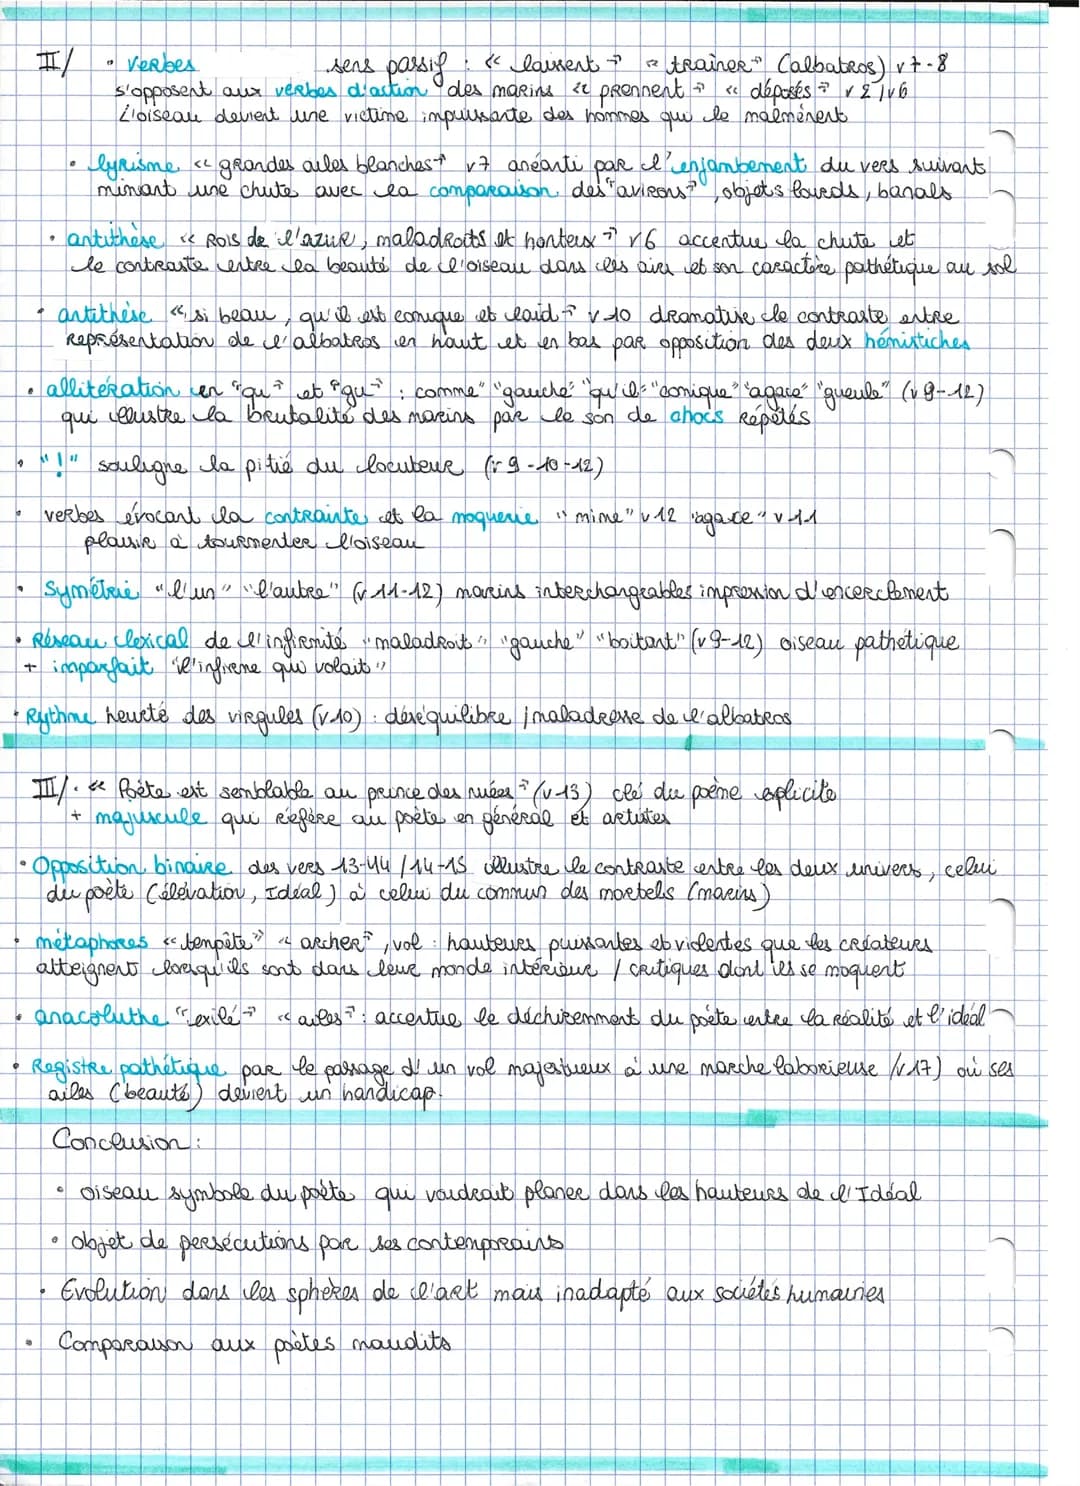 II/ • verbes sens passif : « laissent » « traîner » (albatros) v7-8
s'opposent aux verbes d'action des marins « prennent » « déposés » v2/v6
L'oiseau devient une victime impuissante des hommes qui le malmènent
• lyrisme « grandes ailes blanches » v7 anéanti par l'enjambement du vers suivant
mimant une chute avec la comparaison des "avirons", objets lourds, banals
• antithèse « Rois de l'azur, maladroits et honteux » v6 accentue la chute et
le contraste entre la beauté de l'oiseau dans les airs et son caractère pathétique au sol
• antithèse « si beau, qu'il est comique et laid » v10 dramatise le contraste entre
représentation de l'albatros en haut et en bas par opposition des deux hémistiches
• allitération en "qu" et "gu" : comme" "gauche" "qu'il" "comique" "agace" "gueule" (v9-12)
qui illustre la brutalité des marins par le son de chocs répétés
• "!" souligne la pitié du locuteur (v9-10-12)
• verbes évocant la contrainte et la moquerie "mime" v12 "agace" v11
plaisir à tourmenter l'oiseau
• Symétrie "l'un" "l'autre" (v11-12) marins interchangeables impression d'encerclement
• Réseau lexical de l'infirmité "maladroit" "gauche" "boitant" (v9-12) oiseau pathétique
+ imparfait "l'infirme qui volait"
• Rythme heurté des virgules (v10) : déséquilibre / maladresse de l'albatros
III/ • « Poète est semblable au prince des nuées » (v13) clé du poème explicite
+ majuscule qui réfère au poète en général et artistes
• Opposition binaire des vers 13-14 / 14-15 illustre le contraste entre les deux univers, celui
du poète (élévation, Idéal) à celui du commun des mortels (marins)
• métaphores « tempête » « archer », vol : hauteurs puissantes et violentes que les créateurs
atteignent lorsqu'ils sont dans leur monde intérieur / critiques dont ils se moquent
• anacoluthe « exilé » « ailes » : accentue le déchirement du poète entre la réalité et l'idéal
• Registre pathétique par le passage d'un vol majestueux à une marche laborieuse (v17) où ses
ailes (beauté) devient un handicap.
Conclusion :
• oiseau symbole du poète qui voudrait planer dans les hauteurs de l'Idéal
• objet de persécutions par ses contemporains
• Evolution dans les sphères de l'art mais inadapté aux sociétés humaines
• Comparaison aux poètes maudits